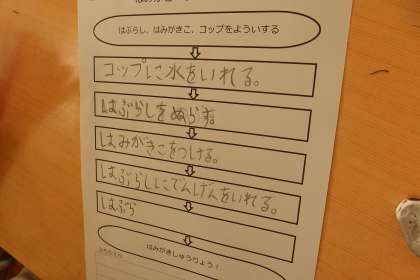 はぶらし、はみがきこ、コップをよういする
コップに水をいれる。
はぶらしをぬらす。
はみがきこをつける。
はぶらしにでんげんをいれる。
はぶら
はみがきしゅうりょう！